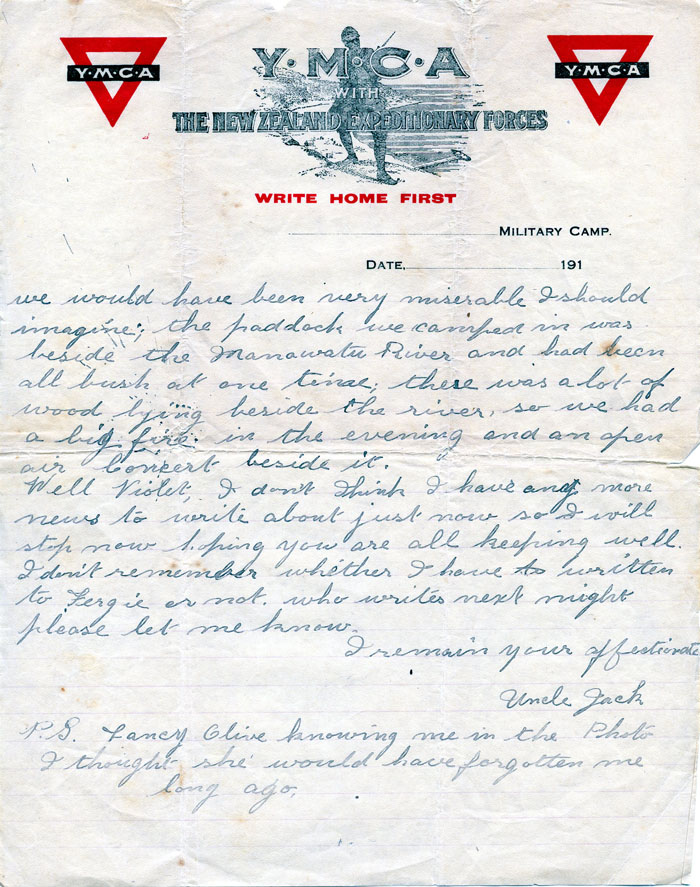 Y·M·C·A
Y·M·C·A
Y·M·C·A
WITH
THE NEW ZEALAND EXPEDITIONARY FORCES
WRITE HOME FIRST
MILITARY CAMP.
DATE, 191
we would have been very miserable I should
imagine; the paddock we camped in was
beside the Manawatu River and had been
all bush at one time; there was a lot of
wood lying beside the river, so we had
a big fire in the evening and an open
air Concert beside it.
Well Violet, I don't think I have any more
news to write about just now so I will
stop now hoping you are all keeping well.
I don't remember whether I have to written
to Fergie or not. who writes next might
please let me know.
I remain your affectionate
Uncle Jack
P.S. Fancy Olive knowing me in the Photo
I thought she would have forgotten me
long ago.